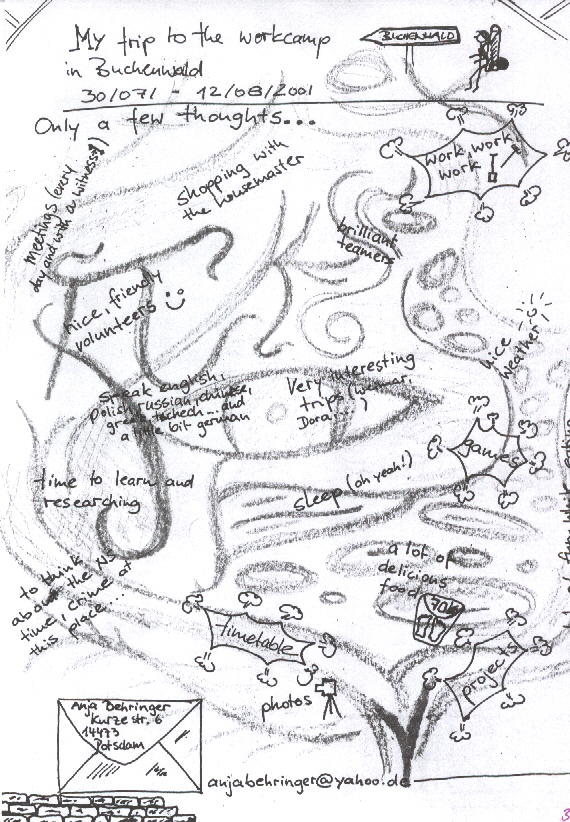 My trip to the workcamp
in Buchenwald
30/07/ - 12/08/2001
BUCHENWALD
Only a few thoughts...
work, work,
work
meetings (every
day and with a witness)
shopping with
the housemaster
brilliant
teamers
nice, friendly
volunteers
nice
weather
speak english,
polish, russian, chinese,
greek, tschech... and
a little bit german
Very interesting
trips (Weimar,
Dora...)
games
sleep (oh yeah!)
time to learn and
researching
a lot of
delicious
food
to think
about the NS
time, crime at
this place...
timetable
projects
photos
Anja Behringer
Kurze str. 6
14473
Potsdam
anjabehringer@yahoo.de
3